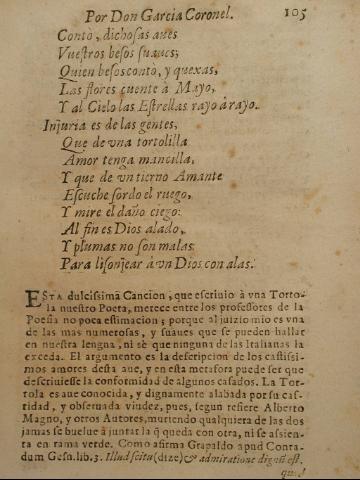 Por Don Garcia Coronel. 105
Contò, dichosas aues
Vuestros besos suaues;
Quien besos contò, y quexas,
Las flores cuente à Mayo,
Y al Cielo las Estrellas rayo à rayo.
Injuria es de las gentes,
Que de vna tortolilla
Amor tenga mancilla,
Y que de vn tierno Amante
Escuche sordo el ruego,
Y mire el daño ciego:
Al fin es Dios alado,
Y plumas no son malas
Para lisonjear à vn Dios con alas.
ESTA dulcissima Cancion, que escriuiò à vna Torto-
la nuestro Poeta, merece entre los professores de la
Poesia no poca estimacion; porque al juizio mio es vna
de las mas numerosas, y suaues que se pueden hallar
en nuestra lengua, ni sè que ninguna de las Italianas la
exceda. El argumento es la descripcion de los castissi-
mos amores desta aue, y en esta metafora puede ser que
descriuiesse la conformidad de algunos casados. La Tor-
tola es aue conocida, y dignamente alabada por su cas-
tidad, y obseruada viudez, pues, segun refiere Alberto
Magno, y otros Autores, muriendo qualquiera de las dos
jamas se buelue à juntar la q̃ queda con otra, ni se assien-
ta en rama verde. Como afirma Grapaldo apud Conra-
dum Gesn. lib. 3. Illud scitu (dize) & admiratione dignũ est,